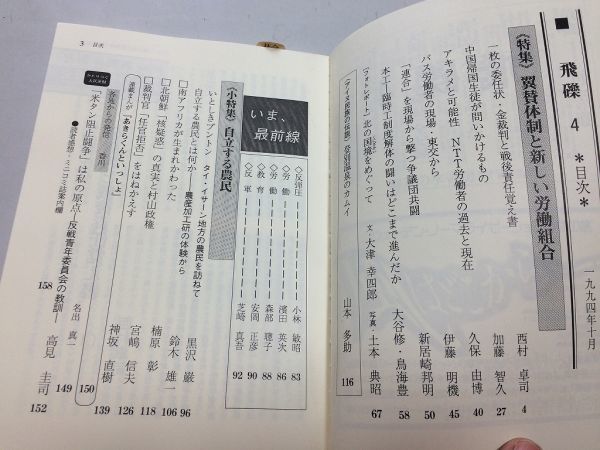 ■ 飛礫 4 ＊目次＊
一九九四年十月
《特集》 翼賛体制と新しい労働組合
一枚の委任状・金裁判と戦後責任覚え書 西村 卓司 4
中国帰国生徒が問いかけるもの 加藤 智久 27
アキラメと可能性 NTT労働者の過去と現在 久保 由博 40
バス労働者の現場・東京から 伊藤 明機 45
「連合」を現場から撃つ争議団共闘 新居崎邦明 50
本工—臨時工制度解体の闘いはどこまで進んだか 大谷修・鳥海豊 58
〔フォトレポート〕 北の国境をめぐって 文・大津 幸四郎 写真・土本 典昭 67
山本 多助 116
いま、最前線
◇反弾圧 小林 敏昭 83
◇労働 濱田 英次 86
◇労働 森部 聰子 88
◇教育 安岡 正彦 90
◇反軍 芝崎 真吾 92
《小特集》 自立する農民
いとしきプントン タイ・イサーン地方の農民を訪ねて 黒沢 巌 96
自立する農民とは何か— 農産加工研の体験から 鈴木 雄一 106
□南アフリカが生まれかわった 楠原 彰 118
□北朝鮮「核疑惑」の真実と村山政権 宮嶋 信夫 126
□裁判官「任官拒否」をはねかえす 神坂 直樹 139
連載まんが「あきらくんといっしょ」 150
各地からの発信 香川
「米タン阻止闘争」は私の原点—反戦青年委員会の教訓— 高見 圭司 152
●読者感想 ・ミニコミ誌案内欄 158
名出 真一 149
3 目次